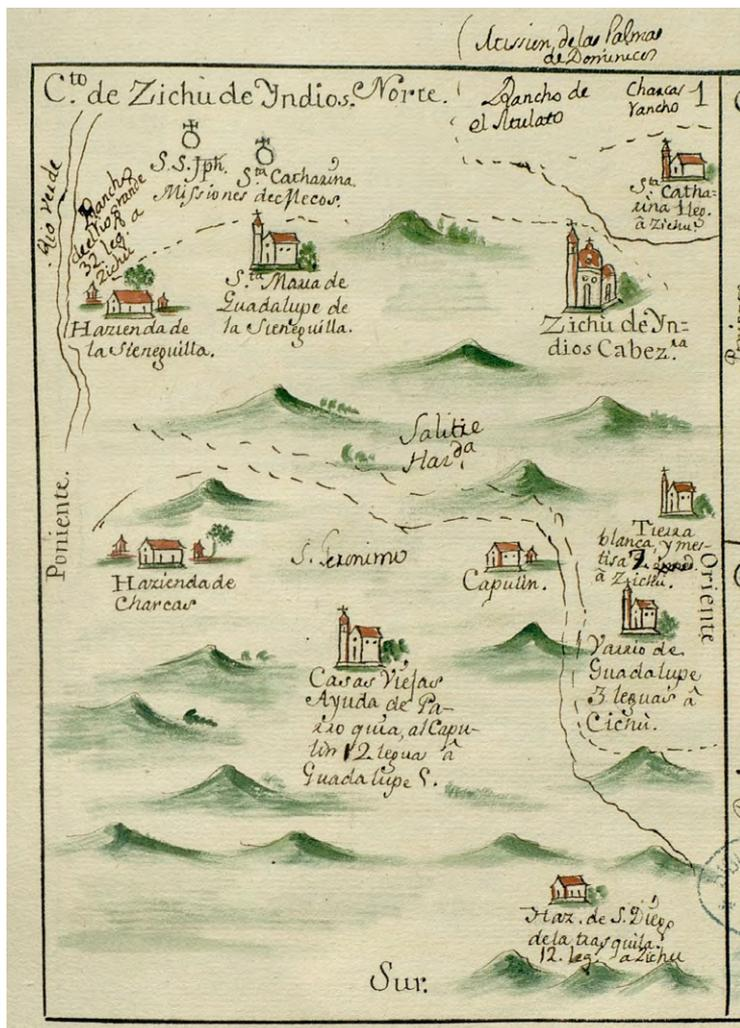 Mission de las Palmas
de Dominicos
C.to de Zichù de Yndios. Norte.
Rancho de
el Mulato
Charcas
rancho
1
Rio Verde
Rancho
de el Rio grande
32. leg. a
Zichù
S. S. Jph.
S.ta Catharina.
Missiones de Mecos.
S.ta Catha-
rina 1 leg.
â Zichù.
Hazienda de
la Sieneguilla.
S.ta Maria de
Guadalupe de
la Sieneguilla.
Zichù de Yn-
dios Cabez.ra
Salitre
Haz.da
Poniente.
Oriente
Hazienda de
Charcas
S. Geronimo
Capulin.
Tierra
blanca, y mes-
tisa 7
â Zichù.
Casas Viejas
Ayuda de Pa-
rro quia, al Capu-
lin 12. legua â
Guadalupe 5.
Varrio de
Guadalupe
3 leguas â
Cichù.
Haz. de S. Diego
de la trasquila.
12. leg. a Zichu
Sur.